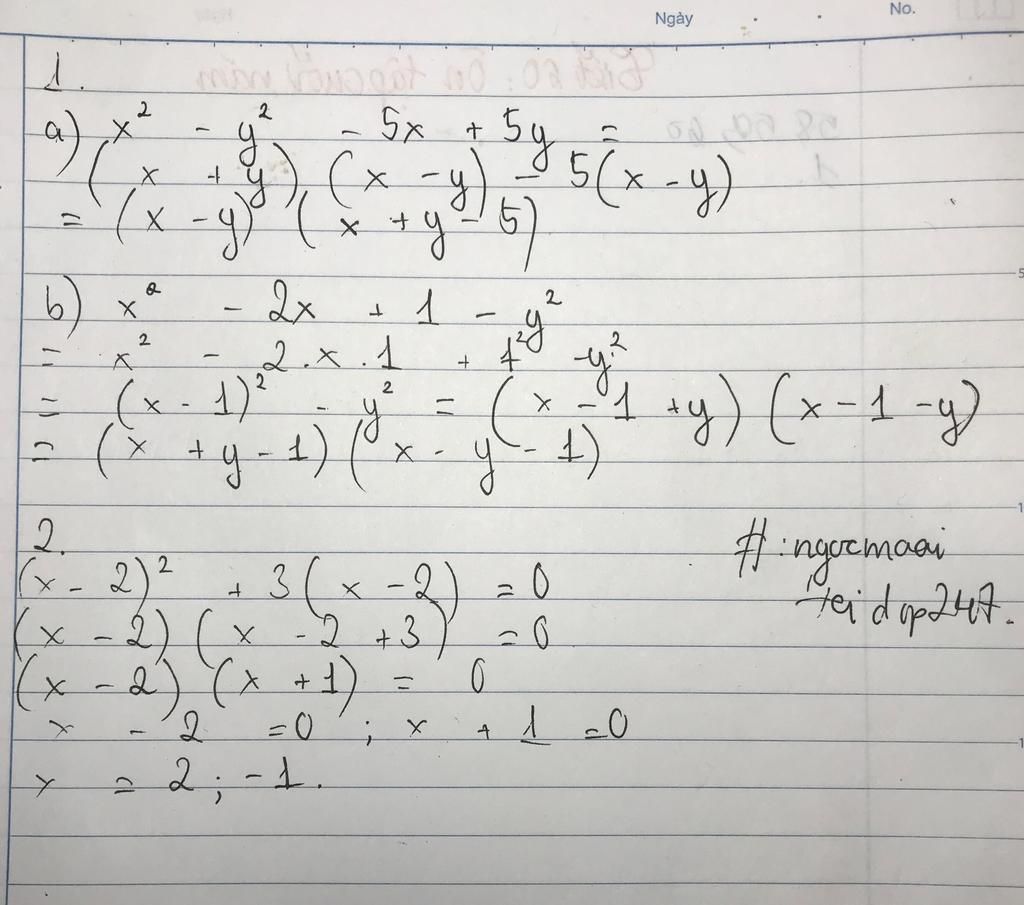 Ngày No.
1.
a) x² - y² - 5x + 5y =
(x + y) (x - y) - 5(x - y)
= (x - y) (x + y - 5)
b) x² - 2x + 1 - y²
= x² - 2.x.1 + 1² - y²
= (x - 1)² - y² = (x - 1 + y) (x - 1 - y)
= (x + y - 1) (x - y - 1)
2.
(x - 2)² + 3(x - 2) = 0
(x - 2) (x - 2 + 3) = 0
(x - 2) (x + 1) = 0
x - 2 = 0 ; x + 1 = 0
x = 2 ; -1.
#:ngocmaai